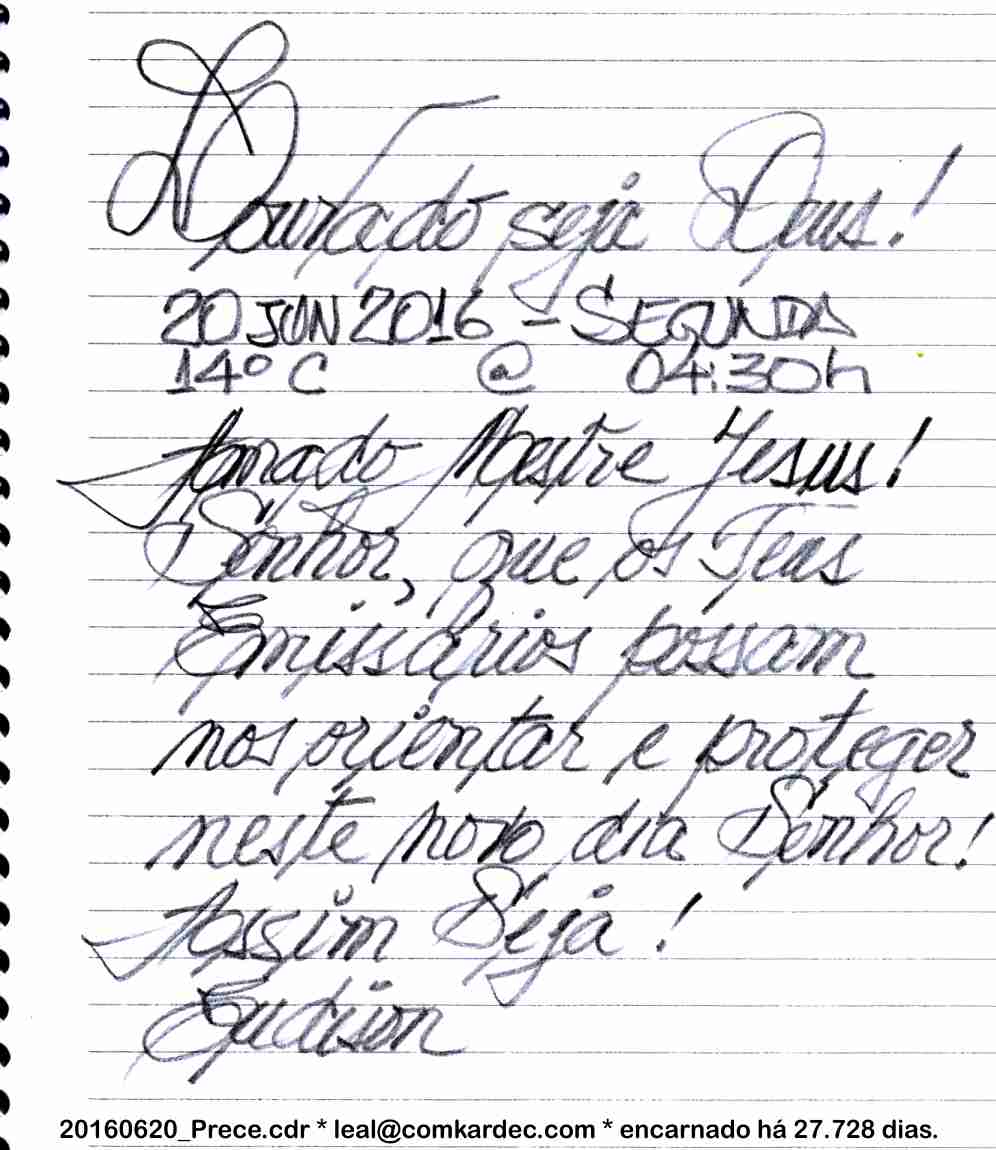 Louvado seja Deus!
20 JUN 2016 - SEGUNDA
14º C @ 04:30h
Amado Mestre Jesus!
Senhor, que os Teus
Emissários possam
nos orientar e proteger
neste novo dia Senhor!
Assim Seja!
Eudison
20160620_Prece.cdr * leal@comkardec.com * encarnado há 27.728 dias.